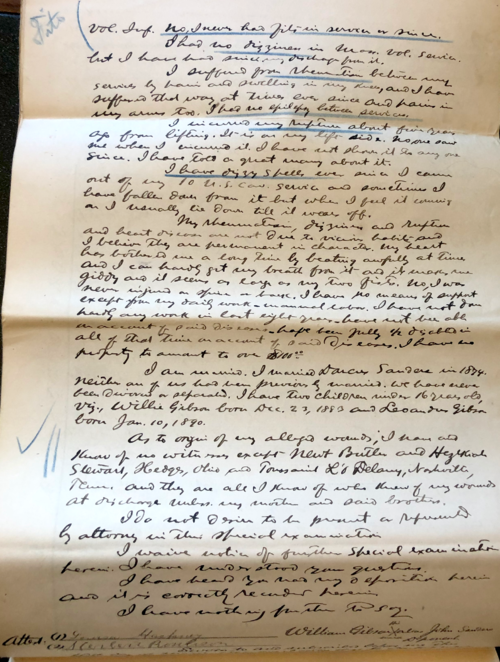 Fits
vol. Inf. No, I never had fits in service or since.
I had no dizziness in Mass. vol. service.
but I have had since my discharge from it.
I suffered from rheumatism between my
services by pain and swelling in my knees and I have
suffered that way at times ever since and pains in
my arms too. I had no epilepsy between services.
I incurred my rupture about five years
ago from lifting. It is on my left side. No one saw
me when I incurred it. I have not shown it to any one
since. I have told a great many about it.
I have dizzy spells ever since I came
out of my 10 U.S. Cav. service and sometimes I
have fallen down from it but when I feel it coming
on I usually lie down till it wears off.
My rheumatism dizziness and rupture
and heart disease are not due to vicious habits and
I believe they are permanent in character. My heart
has bothered me a long time by beating awfully at times
and I can hardly get my breath from it and it makes me
giddy and it seems as large as my two fists. No, I was
never injured in spine or back. I have no means of support
except from my daily work manual labor. I have not done
hardly any work in last eight years, have not been able
on account of said diseases. have been fully ½ disabled in
all of that time on account of said diseases. I have no
property to amount to over
I am married. I married Dorcus Sanders in 1874.
Neither of us had been previously married. We have never
been divorced or separated. I have two children under 16 years old,
viz., Willie Gibson born Dec. 23, 1883 and Leoander Gibson
born Jan. 10, 1890.
As to origin of my alleged wounds, I
know of no witnesses except Newt Butler and Hezekiah
Stewart, Hedges, Ohio and Toussaint L'O Delany, Nashville,
Tenn. and they are all I know of who knew of my wounds
at discharge unless my mother and said brothers.
I do not desire to be present or represented
by attorney in this special examination
I waive notice of further special examination
herein. I have understood your questions.
I have heard you read my deposition herein
and it is correctly recorded herein.
I have nothing further to say.
Attest: (1)
William Gibson John Sanders
(2)